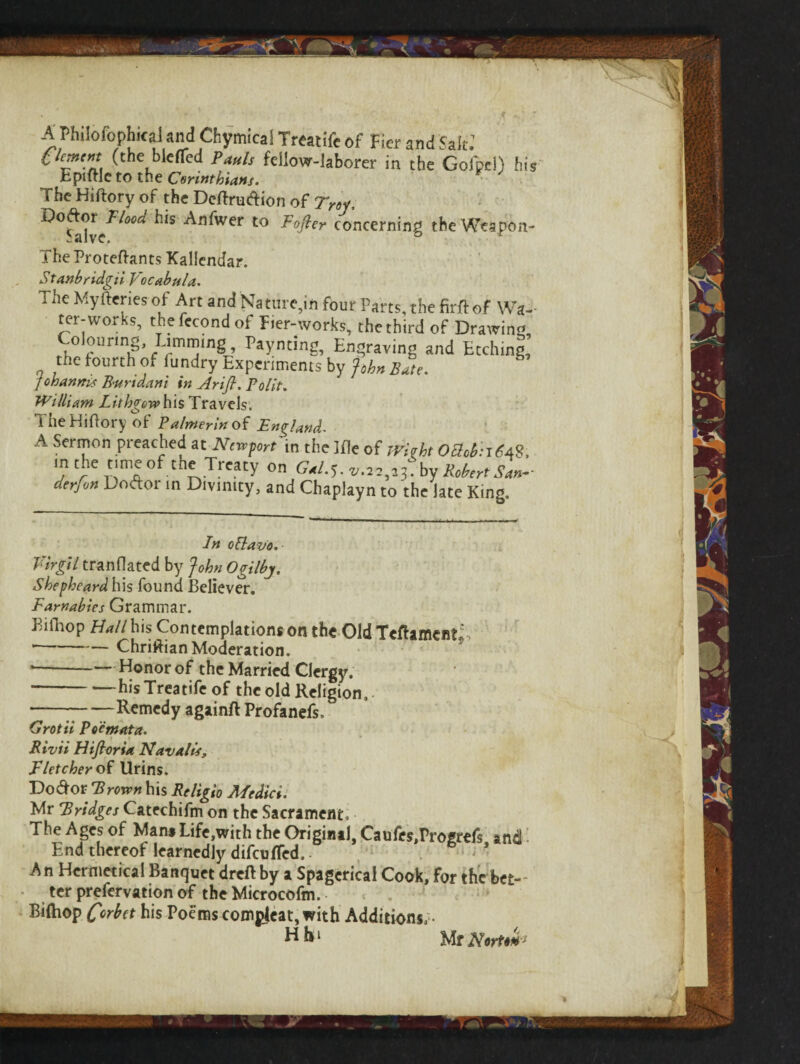 A Philoſophical and Chymical Treatiſe of Fier and Salt.
Clement (the bleſſed Pauls fellow-laborer in the Goſpel) his
Epiſtle to the Corinthians.
The Hiſtory of the Deſtruction of Troy.
Doctor Flood his Anſwer to Foſter concerning the Weapon-
Salve.
The Proteſtants Kallendar.
Stanbridgii Vocabula.
The Myſteries of Art and Nature,in four Parts, the firſt of Wa-
ter-works, the ſecond of Fier-works, the third of Drawing,
Colouring, Limming, Paynting, Engraving and Etching,
the fourth of ſundry Experiments by John Bate.
Johannis Buridani in Ariſt. Polit.
William Lithgow his Travels.
The Hiſtory of Palmerin of England.
A Sermon preached at Newport in the Iſle of Wight Octob: 1648.
in the time of the Treaty on Gal.5. v.22,23. by Robert San-
derſon Doctor in Divinity, and Chaplayn to the late King.
In octavo.
Virgil tranſlated by John Ogilby.
Shepheard his found Believer.
Farnabies Grammar.
Biſhop Hall his Contemplations on the Old Teſtament,
——— Chriſtian Moderation.
——— Honor of the Married Clergy.
——— his Treatiſe of the old Religion,
——— Remedy againſt Profaneſs,
Grotii Poëmata.
Rivii Hiſtoria Navalis,
Fletcher of Urins.
Doctor Brown his Religio Medici.
Mr Bridges Catechiſm on the Sacrament,
The Ages of Mans Life,with the Original, Cauſes,Progreſs, and
End thereof learnedly diſcuſſed.
An Hermetical Banquet dreſt by a Spagerical Cook, for the bet-
ter preſervation of the Microcoſm.
Biſhop Corbet his Poëms compleat, with Additions,
H h 1 Mr Norton